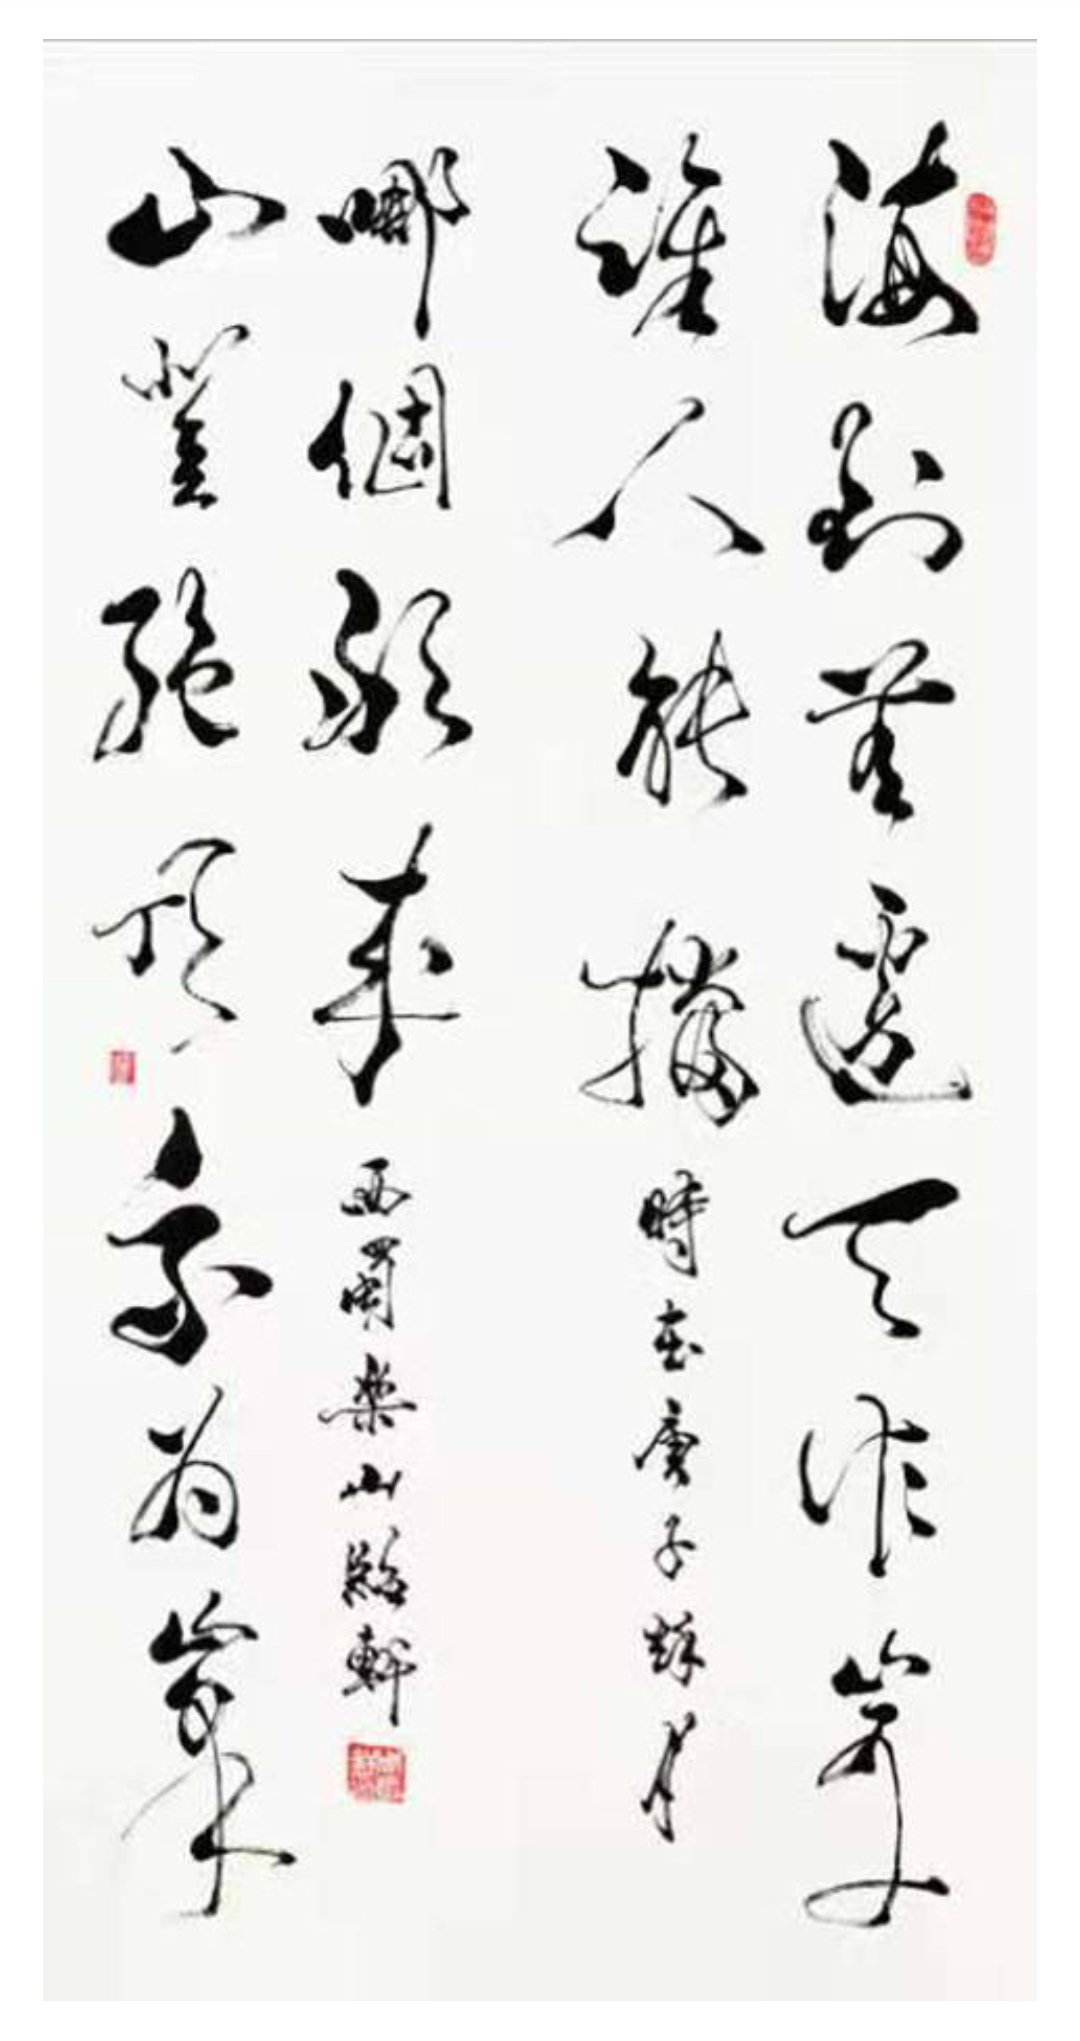 海到無邊天作岸
誰人能擋 時在庚子月
哪個敢來 西蜀樂山軒
山登絕頂我為峯